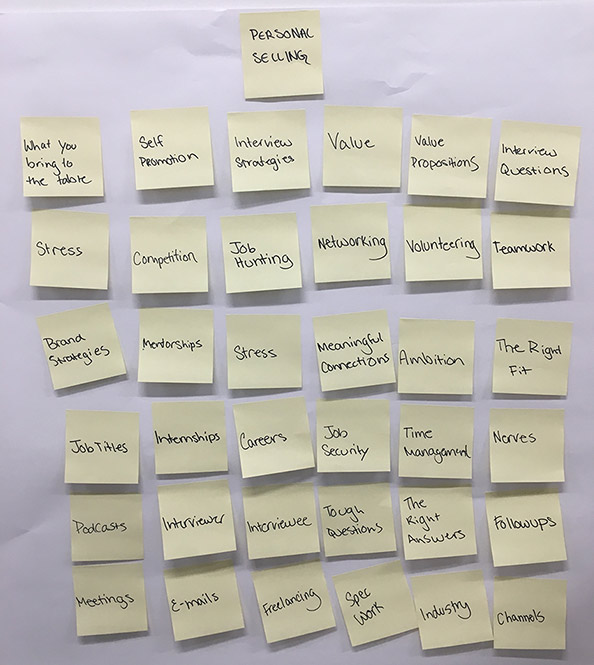 PERSONAL
SELLING
What you
bring to
the table
Self
Promotion
Interview
Strategies
Value
Value
Propositions
Interview
Questions
Stress
Competition
Job
Hunting
Networking
Volunteering
Teamwork
Brand
Strategies
Mentorships
Stress
Meaningful
Connections
Ambition
The Right
Fit
Job Titles
Internships
Careers
Job
Security
Time
Management
Nerves
Podcasts
Interviewer
Interviewee
Tough
Questions
The
Right
Answers
Followups
Meetings
E-mails
Freelancing
Spec
Work
Industry
Channels